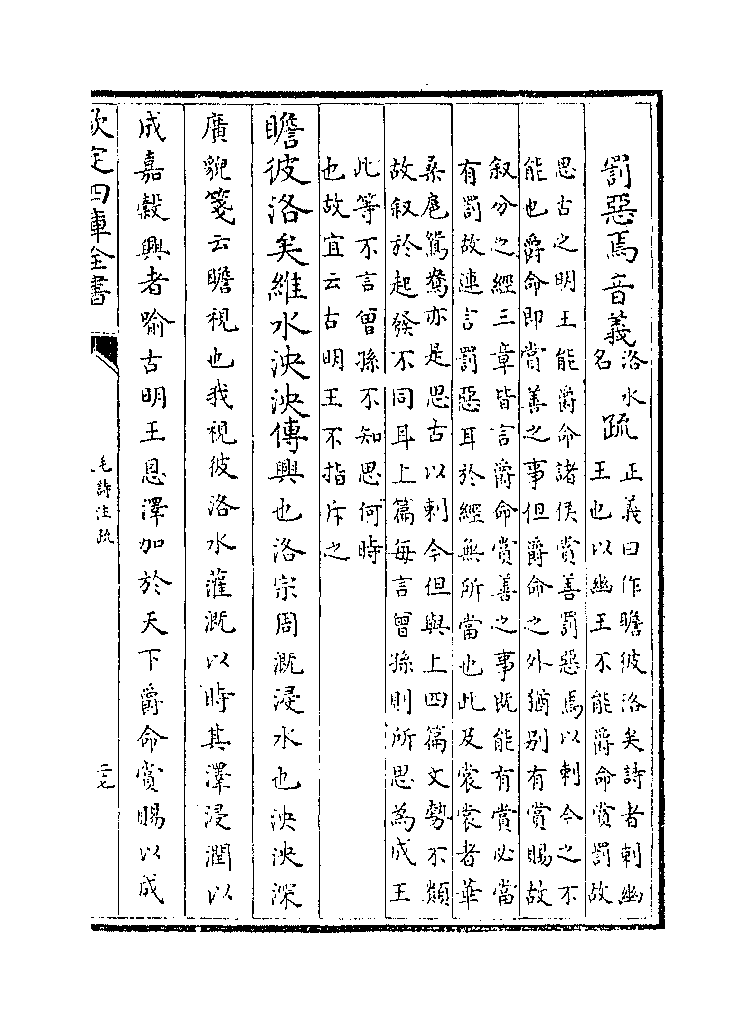 罰惡焉音義洛水
名疏正義曰作瞻彼洛矣詩者刺幽
王也以幽王不能爵命賞罰故
思古之明王能爵命諸侯賞善罰惡焉以刺今之不
能也爵命即賞善之事但爵命之外猶别有賞賜故
叙分之經三章皆言爵命賞善之事既能有賞必當
有罰故連言罰惡耳於經無所當也此及裳裳者華
桑扈鴛鴦亦是思古以刺今但與上四篇文勢不類
故叙於起發不同耳上篇每言曾孫則所思為成王
此等不言曾孫不知思何時
也故宜云古明王不指斥之
瞻彼洛矣維水泱泱傳興也洛宗周溉浸水也泱泱深
廣貌箋云瞻視也我視彼洛水灌溉以時其澤浸潤以
成嘉穀興者喻古明王恩澤加於天下爵命賞賜以成
欽定四庫全書
毛詩注疏
二七